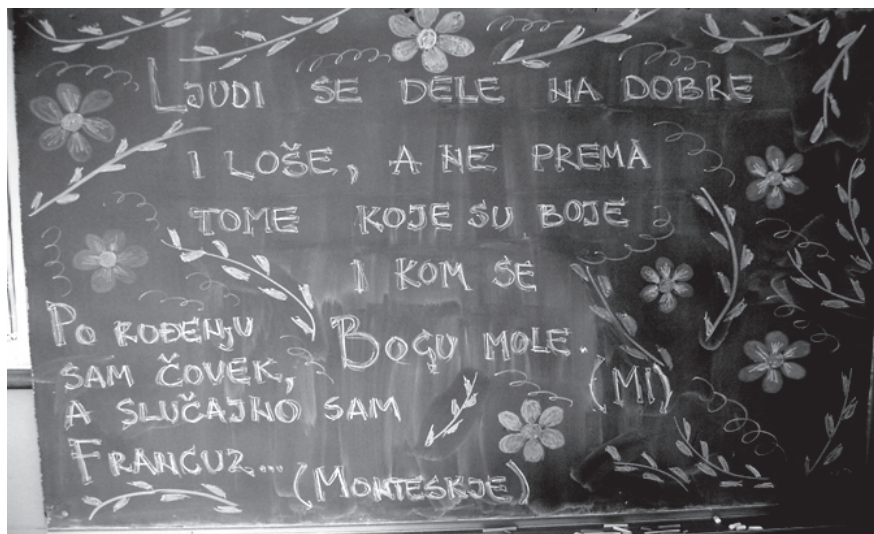 LJUDI SE DELE NA DOBRE
I LOŠE, A NE PREMA
TOME KOJE SU BOJE
I KOM SE
BOGU MOLE.
(MI)
PO ROĐENJU
SAM ČOVEK,
A SLUČAJNO SAM
FRANCUZ...
(MONTESKJE)